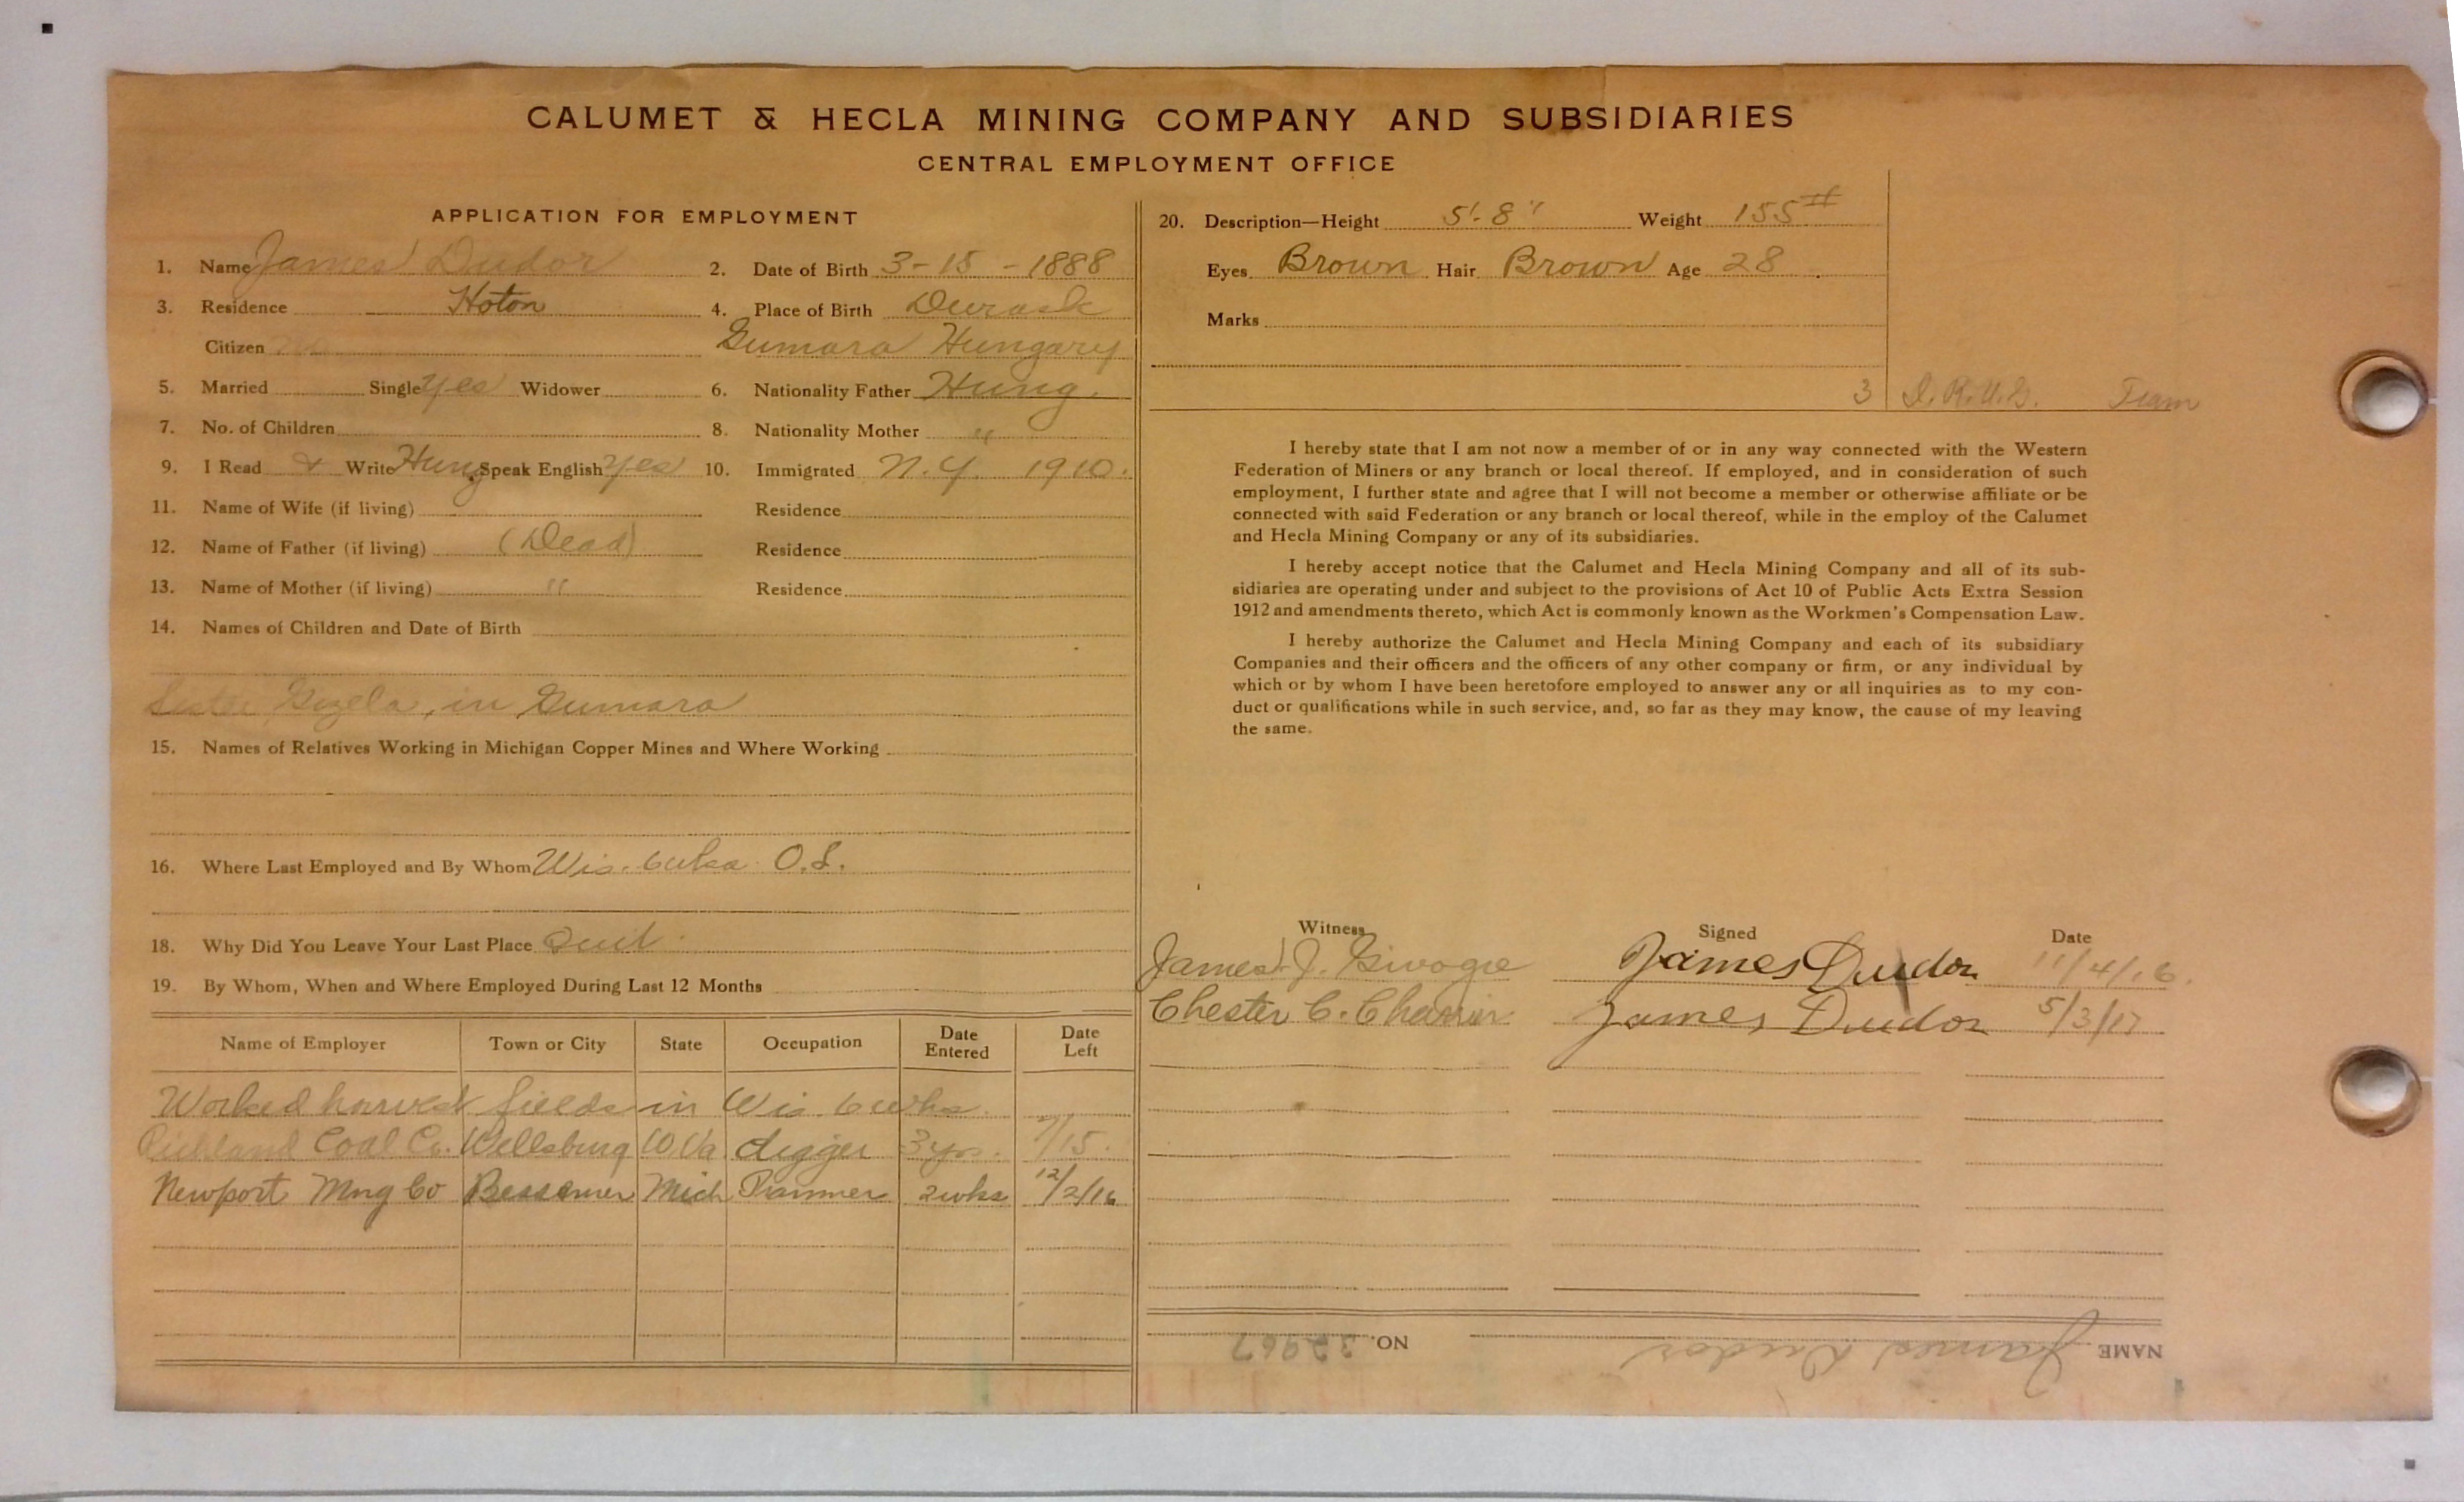 CALUMET & HECLA MINING COMPANY AND SUBSIDIARIES
CENTRAL EMPLOYMENT OFFICE
APPLICATION FOR EMPLOYMENT
1. Name James Dudor 2. Date of Birth 3-15-1888
3. Residence Hoton 4. Place of Birth
Citizen Gumara Hungary
5. Married Single yes Widower 6. Nationality Father Hung.
7. No. of Children 8. Nationality Mother "
9. I Read & Write Hung Speak English yes 10. Immigrated N.Y. 1910.
11. Name of Wife (if living) Residence
12. Name of Father (if living) (Dead) Residence
13. Name of Mother (if living) " Residence
14. Names of Children and Date of Birth
Sister Gizela, in Gumara
15. Names of Relatives Working in Michigan Copper Mines and Where Working
16. Where Last Employed and By Whom Wis. 6wks O.S.
18. Why Did You Leave Your Last Place Quit.
19. By Whom, When and Where Employed During Last 12 Months
Name of Employer Town or City State Occupation Date Entered Date Left
Worked harvest fields in Wis. 6 wks.
Richland Coal Co. Wellsburg W.Va. digger 3 yrs. 7/15.
Newport Mng Co Bessemer Mich Trammer 2wks 12/2/16
20. Description—Height 5'-8" Weight 155#
Eyes Brown Hair Brown Age 28
Marks
3 Tram
I hereby state that I am not now a member of or in any way connected with the Western
Federation of Miners or any branch or local thereof. If employed, and in consideration of such
employment, I further state and agree that I will not become a member or otherwise affiliate or be
connected with said Federation or any branch or local thereof, while in the employ of the Calumet
and Hecla Mining Company or any of its subsidiaries.
I hereby accept notice that the Calumet and Hecla Mining Company and all of its sub-
sidiaries are operating under and subject to the provisions of Act 10 of Public Acts Extra Session
1912 and amendments thereto, which Act is commonly known as the Workmen's Compensation Law.
I hereby authorize the Calumet and Hecla Mining Company and each of its subsidiary
Companies and their officers and the officers of any other company or firm, or any individual by
which or by whom I have been heretofore employed to answer any or all inquiries as to my con-
duct or qualifications while in such service, and, so far as they may know, the cause of my leaving
the same.
Witness Signed Date
James J. James Dudor 11/4/16.
Chester C. James Dudor 5/3/17
NAME James Dudor NO. 32967